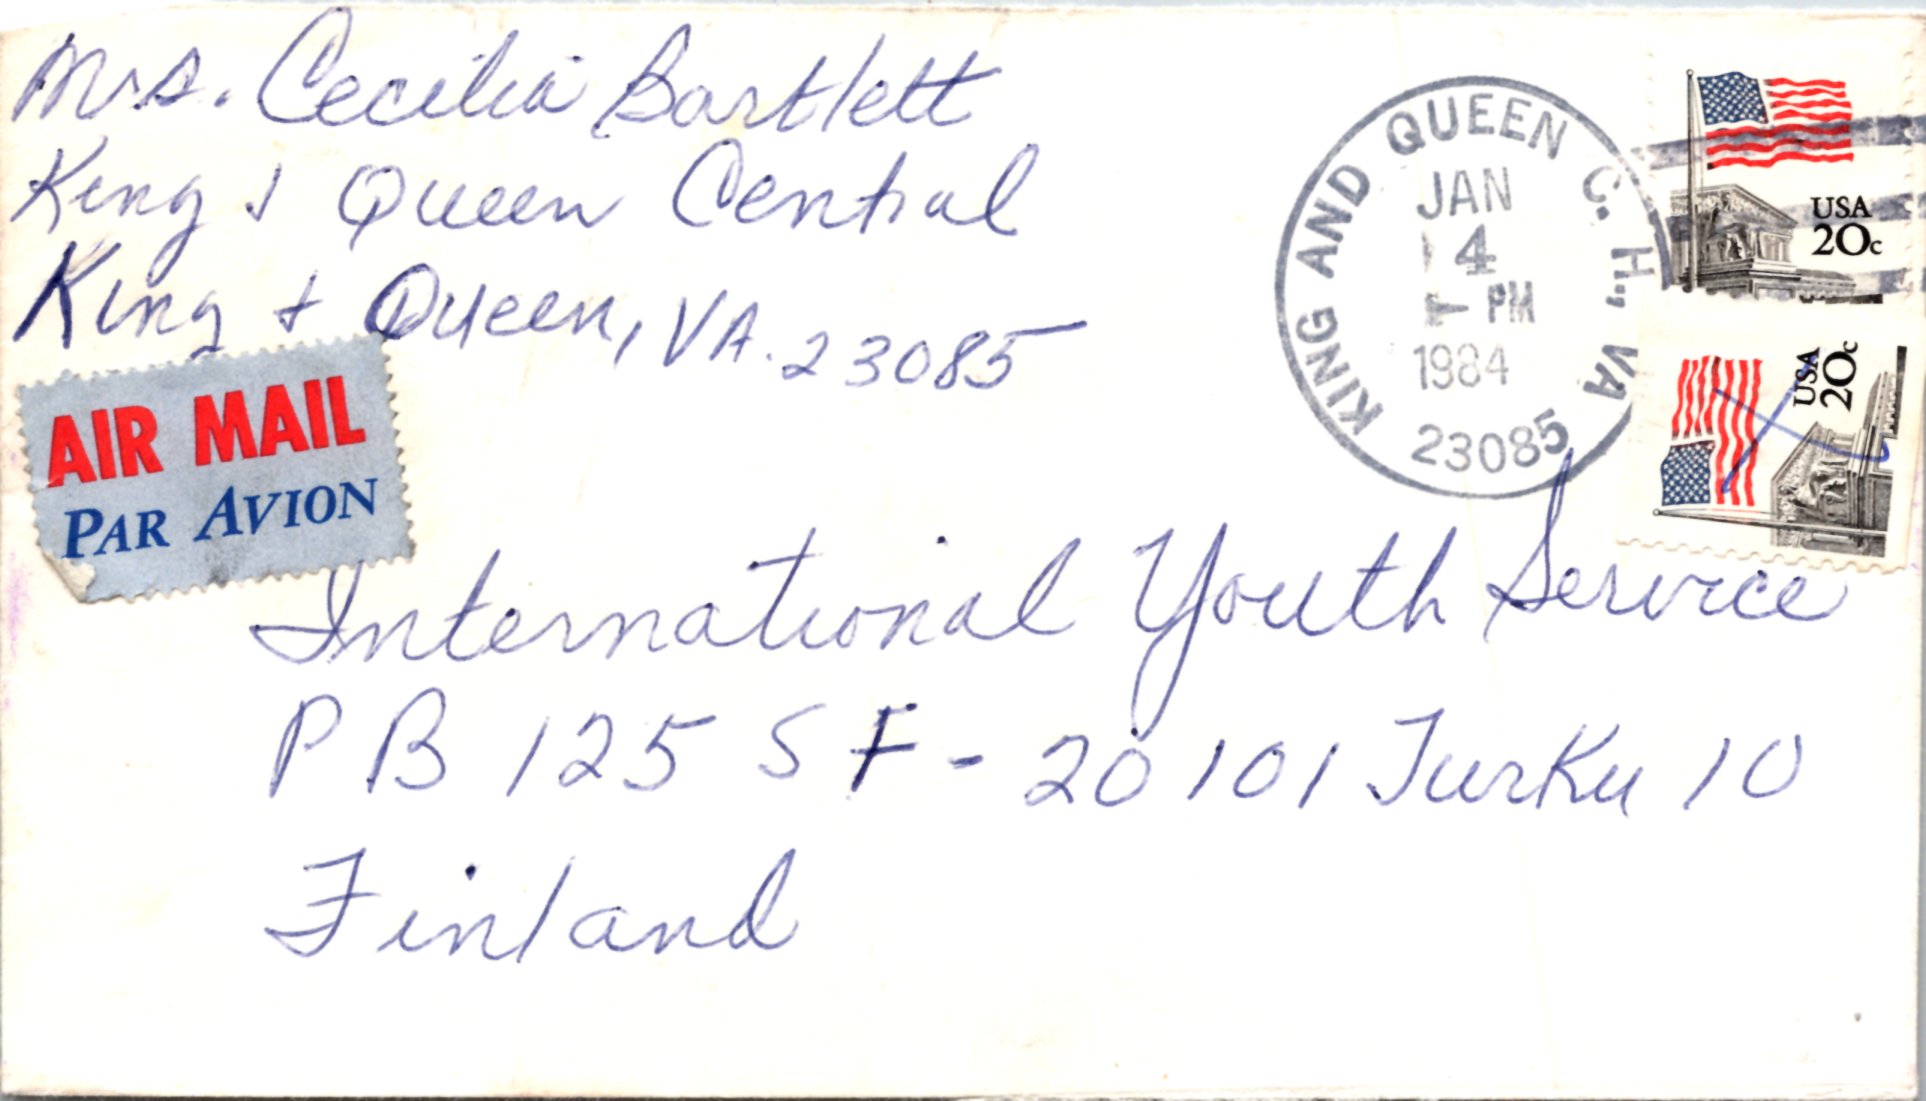 Mrs. Cecilia Bartlett
King & Queen Central
King & Queen, VA. 23085
KING AND QUEEN C. H., VA
JAN
4
PM
1984
23085
USA
20c
USA
20c
AIR MAIL
PAR AVION
International Youth Service
P B 125 S F - 20101 Turku 10
Finland